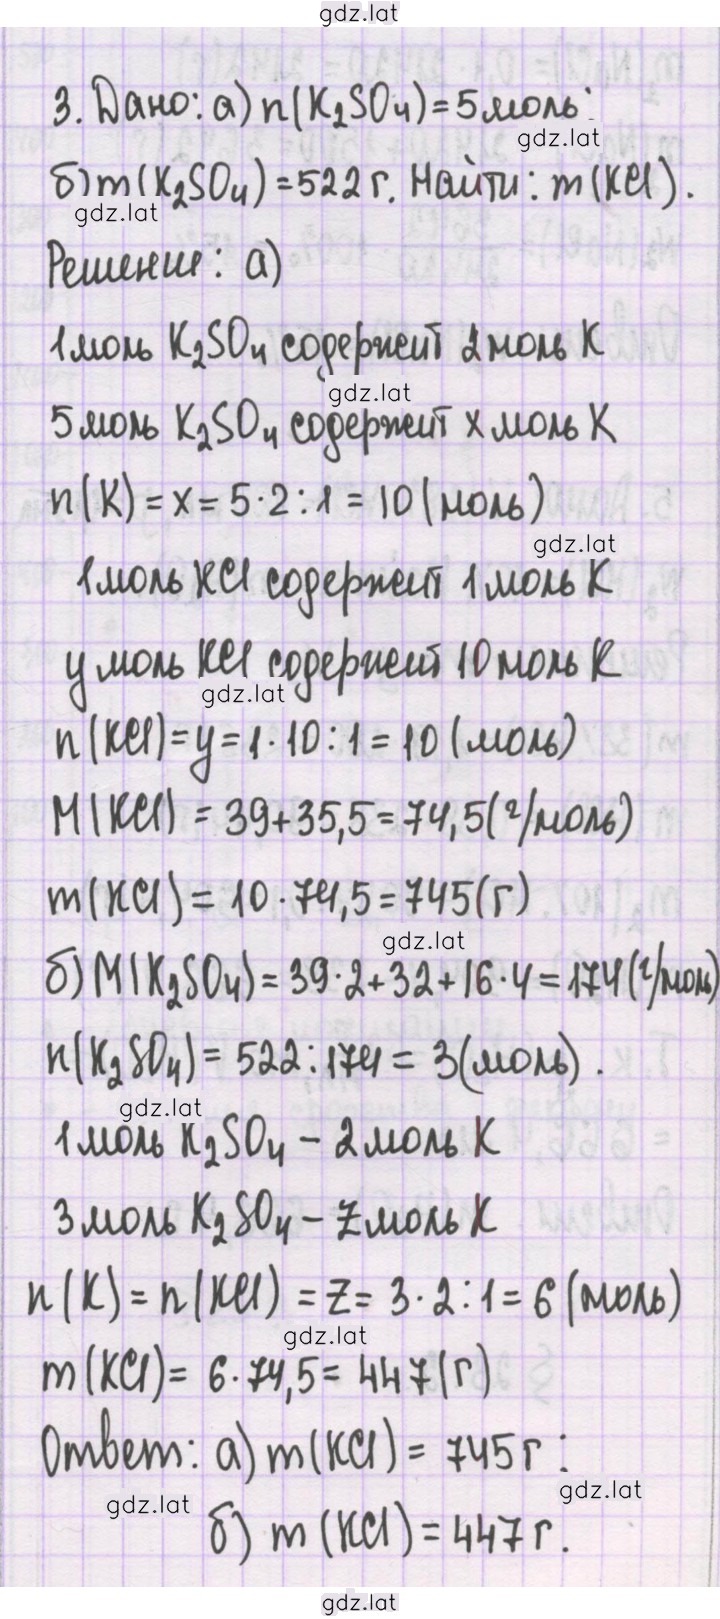 gdz.lat
3. Дано: а) n(K₂SO₄) = 5 моль:
gdz.lat
б) m(K₂SO₄) = 522 г. Найти: m(KCl).
gdz.lat
Решение: а)
1 моль K₂SO₄ содержит 2 моль K
gdz.lat
5 моль K₂SO₄ содержит x моль K
n(K) = x = 5·2:1 = 10 (моль)
gdz.lat
1 моль KCl содержит 1 моль K
y моль KCl содержит 10 моль K
gdz.lat
n(KCl) = y = 1·10:1 = 10 (моль)
M(KCl) = 39+35,5 = 74,5 (г/моль)
m(KCl) = 10·74,5 = 745 (г)
gdz.lat
б) M(K₂SO₄) = 39·2+32+16·4 = 174 (г/моль)
n(K₂SO₄) = 522:174 = 3 (моль).
gdz.lat
1 моль K₂SO₄ – 2 моль K
3 моль K₂SO₄ – z моль K
n(K) = n(KCl) = z = 3·2:1 = 6 (моль)
gdz.lat
m(KCl) = 6·74,5 = 447 (г)
Ответ: а) m(KCl) = 745 г:
gdz.lat
gdz.lat
б) m(KCl) = 447 г.
gdz.lat